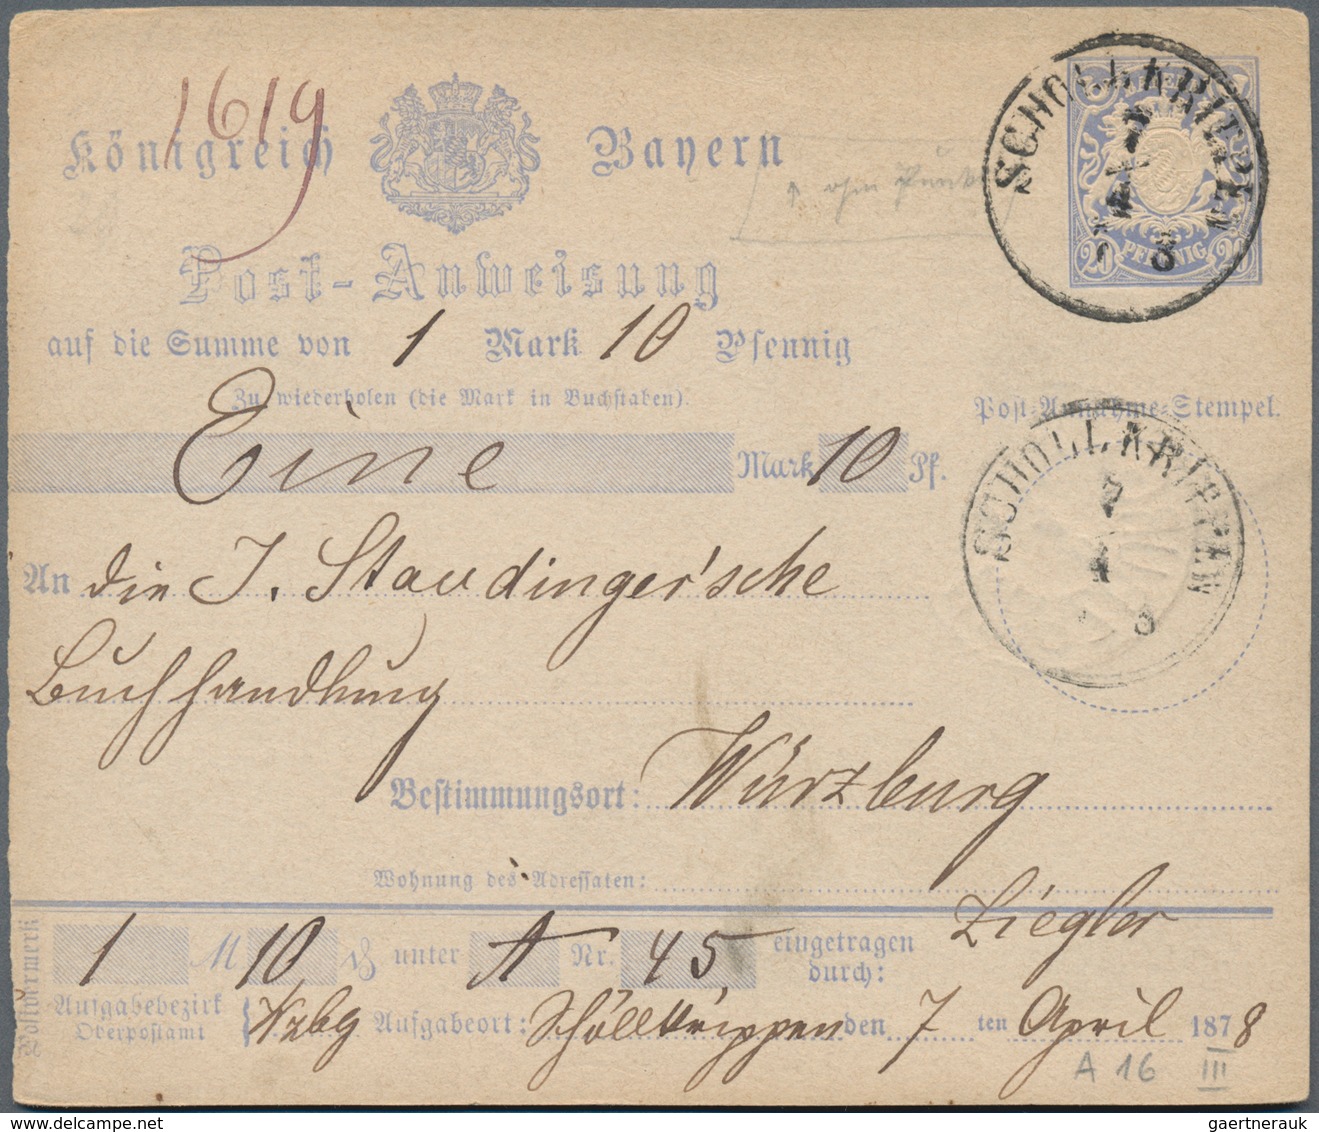 1619
Königreich Bayern
↑ ohne Punkt
Post-Anweisung
auf die Summe von 1 Mark 10 Pfennig
Zu wiederholen (die Mark in Buchstaben).
Eine Mark 10 Pf.
PFENNIG
20 20
SCHOLLKRIPPEN
7
4
8
Post-Annahme-Stempel.
SCHOLLKRIPPEN
7
4
8
An die J. Staudinger'sche
Buchhandlung
Bestimmungsort: Würzburg
Wohnung des Adressaten:
Postvermerk
1 M 10 ₰ unter A Nr. 45 eingetragen durch: Ziegler
Aufgabebezirk
Oberpostamt
Wzbg Aufgabeort: Schöllkrippen den 7 ten April 1878
A 16 III
gaertnerauk @ delcampe.net